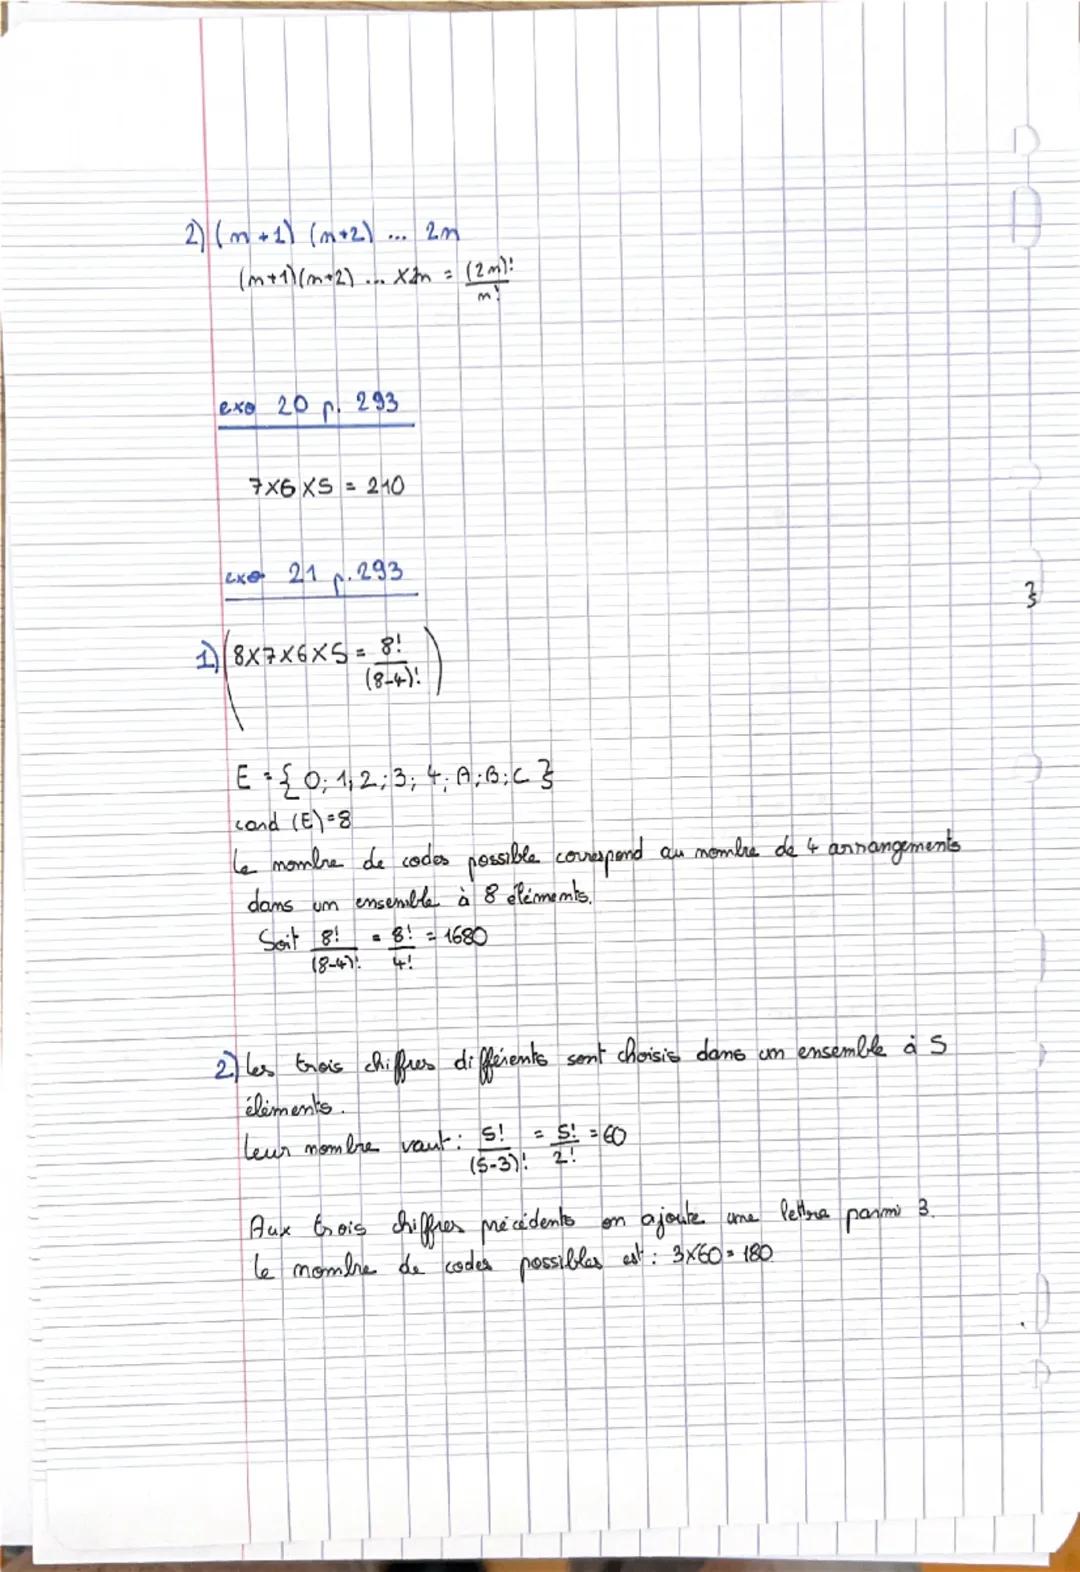 2) (n+1) (n+2) ... 2n
(n+1)(n+2) ... x2n = (2n)!/n!
exo 20 p. 293
7x6x5 = 210
exo 21 p.293
1) (8x7x6x5 = 8!/(8-4)!)
E = { 0; 1; 2; 3; 4; A; B; C }
card (E)=8
Le nombre de codes possible correspond au nombre de 4 arrangements
dans un ensemble à 8 éléments.
Soit 8!/(8-4)! = 8!/4! = 1680
2) Les trois chiffres différents sont choisis dans un ensemble à 5
éléments.
Leur nombre vaut : 5!/(5-3)! = 5!/2! = 60
Aux trois chiffres précédents on ajoute une lettre parmi 3.
Le nombre de codes possibles est : 3x60 = 180